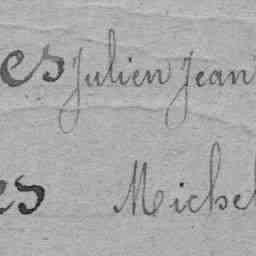 es Julien Jean
es Michel